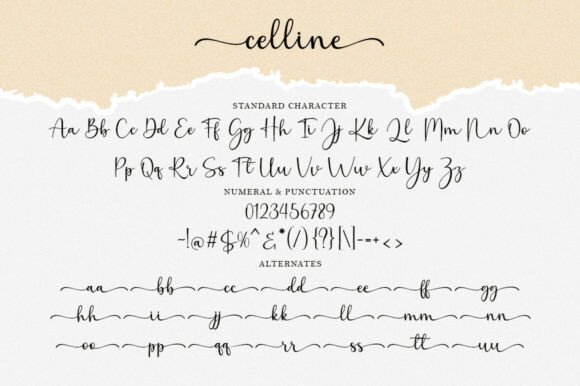 celline
STANDARD CHARACTER
Aa Bb Cc Dd Ee Ff Gg Hh Ii Jj Kk Ll Mm Nn Oo
Pp Qq Rr Ss Tt Uu Vv Ww Xx Yy Zz
NUMERAL & PUNCTUATION
0123456789
~!@#$%^&*(/){?}[\]-=+<>
ALTERNATES
aa bb cc dd ee ff gg
hh ii jj kk ll mm nn
oo pp qq rr ss tt uu